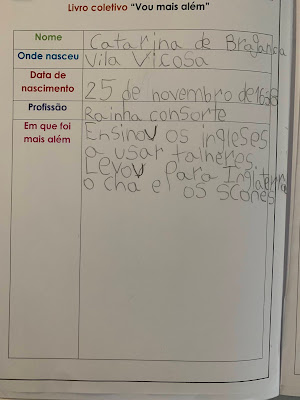 Livro coletivo "Vou mais além"
Nome
Catarina de Bragança
Onde nasceu
Vila Vicosa
Data de nascimento
25 de novembro de 1638
Profissão
Rainha consorte
Em que foi mais além
Ensinou os ingleses
a usar talheres.
Levou para Inglaterra
o cha e os scones